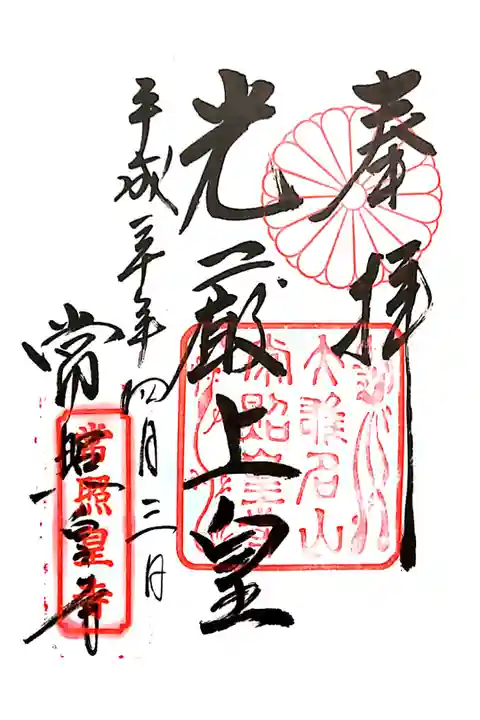 奉拝
光厳上皇
平成三十年四月三日
常照皇寺
大雄名山
常照皇寺